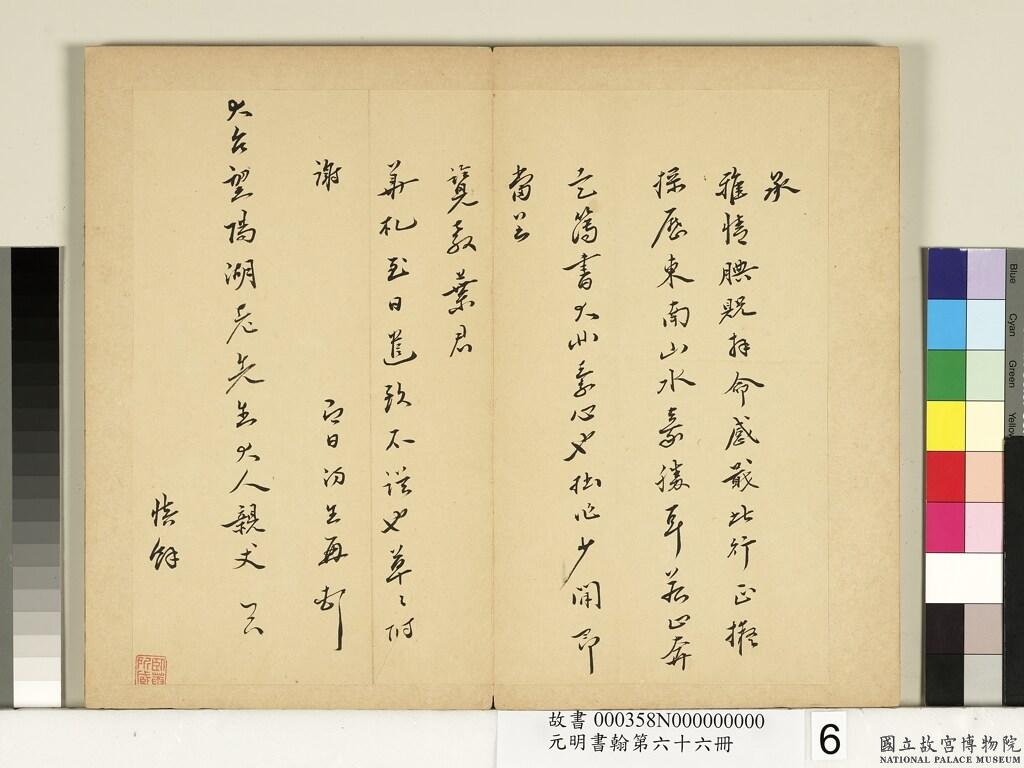 承
雅情腆貺拜命感戢此行正擬
探歷東南山水奇勝耳若止奔
走簿書大非素心也拙作少閒即
當呈
覽教葉君
華札至日造致不誤也草々附
謝
即日沔生再頓
大台望陽湖老先生大人親丈
慎餘
故書 000358N000000000
元明書翰第六十六冊
6
國立故宮博物院
NATIONAL PALACE MUSEUM
Blue
Cyan
Green
Yellow